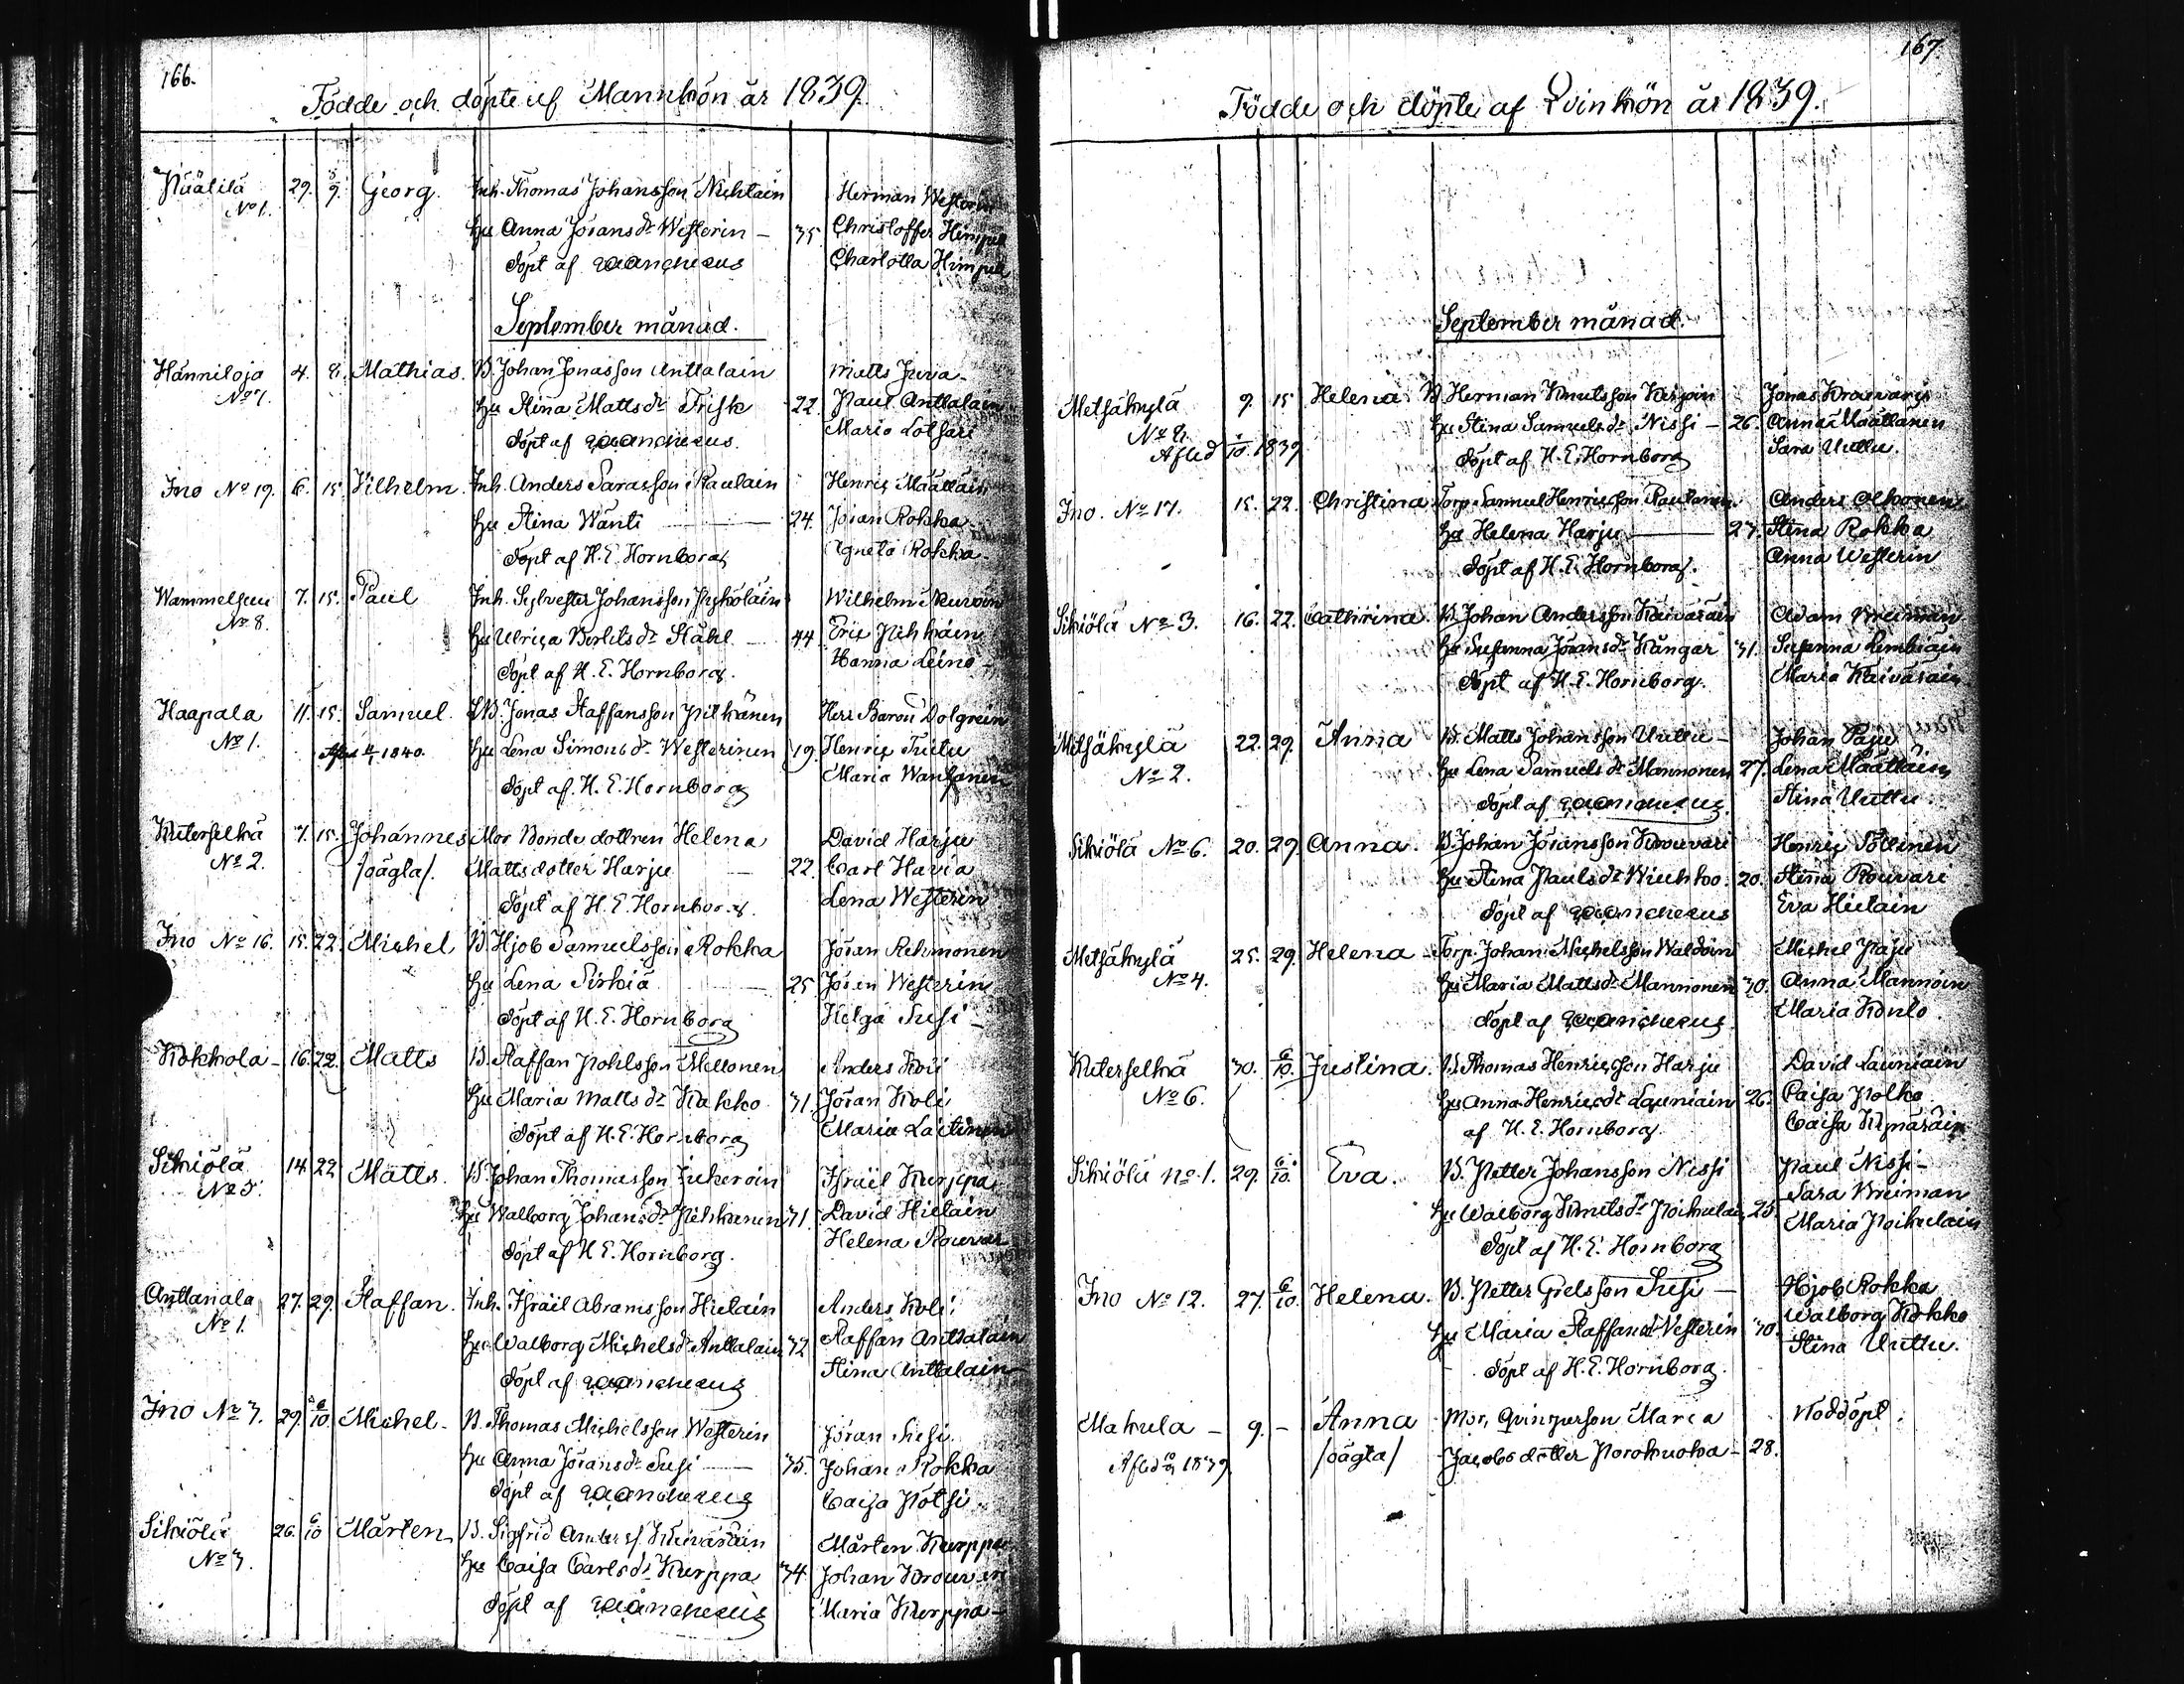 166.
Födde och döpte af Mannkön år 1839.
Päälilä 29. 8/9. Georg. Inh. Thomas Johansson Nichtäin Herman Westerin
No 1. Hu Anna Jöransdr Westerin - 35 Christoffer Himpel
döpt af Charlotta Himpel
September månad.
Hänniloja 4. 8. Mathias. B. Johan Jonasson Anttalain Matts Juva
No 7. Hu Stina Mattsdr Frisk 22. Paul Anttalain
döpt af Maria Lotsari
Ino No 19. 6. 15. Vilhelm. Inh. Anders Sarasson Raulain Henric Määttäin
Hu Stina Wänti 24. Jöran Rokka
döpt af H. E. Hornborg Agneta Rokka
Wammelsuu 7. 15. Paul Inh. Sylvester Johansson Pyhöläin Wilhelm Kurvin
No 8. Hu Ulrica Berlitsdr Ståhl - 44 Eric Pihkäin
döpt af H. E. Hornborg. Hanna Leino
Haapala 11. 15. Samuel. B. Jonas Staffansson Pitkänen Herr Baron Dolgrein
No 1. 1840. Hu Lena Simonsdr Westerinen 19. Henric Tuitu
döpt af H. E. Hornborg Maria Wansanen
Kuterselkä 7. 15. Johannes Mor Bonde dottren Helena David Harju
No 2. /oägta/. Mattsdotter Harju 22. Carl Havia
döpt af H. E. Hornborg. Lena Westerin
Ino No 16. 15. 22. Michel B. Hjob Samuelsson Rokka Jöran Rehmonen
Hu Lena Sirkiä 25 Jöran Westerin
döpt af H. E. Hornborg Helga Susi
Kokkola - 16. 22. Matts B. Staffan Pohlsson Mellonen Anders Koli
Hu Maria Mattsdr Kakko 31. Jöran Koli
döpt af H. E. Hornborg Maria Laitinen
Sikiölä 14. 22 Matts. B. Johan Thomasson Inkeroin Israël Kurppa
No 5. Hu Walborg Johansdr Pihkanen 31. David Hietain
döpt af H. E. Hornborg. Helena Kouvar
Anttanala 27. 29. Staffan. Inh. Israël Abramsson Hietain Anders Koli
No 1. Hu Walborg Michelsdr Anttalain 32 Staffan Anttalain
döpt af Stina Anttalain
Ino No 3. 29. 6/10. Michel. B. Thomas Michelsson Westerin Jöran Susi.
Hu Anna Jöransdr Susi 35. Johan Rokka
döpt af Caisa Pötsi
Sikiölä 26. 6/10 Mårten B. Sigfrid Anderss. Kaivaräin Mårten Kurppa
No 3. Hu Caisa Carlsdr Kurppa 34. Johan Krouvari
döpt af Maria Kurppa
167.
Födde och döpte af Qvinkön år 1839.
September månad.
Metsäkylä 9. 15 Helena. B. Herman Knutsson Kirjoin Jonas Krouvari
No 8. Hu Stina Samuelsdr Nissi - 26. Anna Määttänen
Afled 1/10. 1839 döpt af H. E. Hornborg Sara Uuttu.
Ino. No 17. 15. 22. Christina Torp. Samuel Henricsson Rautanen Anders Olkonen
Hu Helena Harju 27. Stina Rokka
döpt af H. E. Hornborg. Anna Westerin
Sikiölä No 3. 16. 22. Cathrina. B. Johan Andersson Kaivaräin Adam Breiman
Hu Susanna Jöransdr Kångar 31. Susanna Lembiäin
döpt af H. E. Hornborg. Maria Kaivaräin
Metsäkylä 22. 29. Anna B. Matts Johansson Uuttu - Johan Paju
No 2. Hu Lena Samuelsdr Mannonen 27. Lena Määttäin
döpt af Stina Uuttu
Sikiölä No 6. 20. 29. Anna. B. Johan Jöransson Krouvari Henric Pöllinen
Hu Stina Paulsdr Wiuhko. 20. Stina Rouvari
döpt af Eva Hietain
Metsäkylä 25. 29. Helena - Torp. Johan Michelsson Waldoin Michel Paju
No 4. Hu Maria Mattsdr Mannonen 30. Anna Mannoin
döpt af Maria Konlo
Kuterselkä 30. 6/10. Justina. B. Thomas Henricsson Harju David Launiain
No 6. Hu Anna Henricsdr Launiain 26. Caisa Polko
af H. E. Hornborg. Caisa Kynäräin
Sikiölä No 1. 29. 6/10. Eva. B. Petter Johansson Nissi Paul Nissi -
Hu Walborg Knutsdr Poikulai 25. Sara Breiman
döpt af H. E. Hornborg Maria Poikulain
Ino No 12. 27. 6/10. Helena. B. Petter Susi - Hjob Rokka
Hu Maria Staffansdr Vesterin 30. Walborg Kokko
döpt af H. E. Hornborg. Stina Uuttu.
Makula - 9. - Anna Mor, Qvinperson Maria Nöddöpt.
Afled 1839. /oägta/ Jacobsdotter Porokuoka - 28.